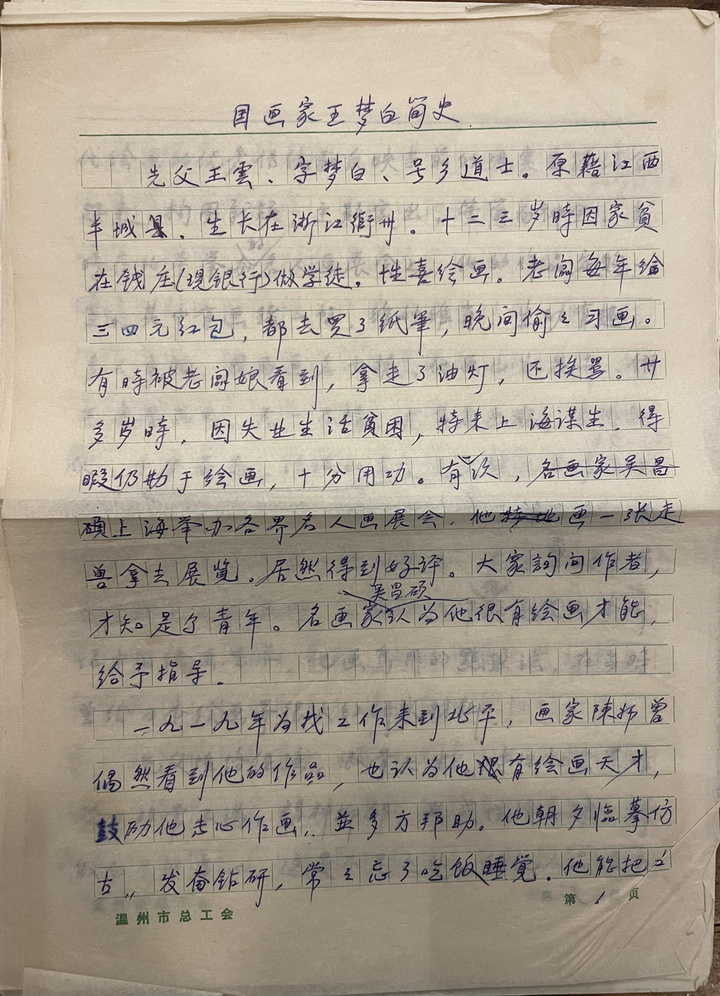 国画家王梦白简史
先父王雲、字梦白、号乡道士。原藉江西
丰城县．生长在浙江衢州。十二三岁時因家貧
在钱庄(現銀行)做学徒。性喜绘画。老闆每年给
三四元红包，都去買了纸筆，晚间偷々习画。
有時被老闆娘看到，拿走了油灯，还挨罵。廿
多岁時，因失业生活貧困，特来上海谋生．得
暇仍勤于绘画，十分用功。有次，名画家吴昌
硕上海举办各界名人画展会．他特地画一张走
兽拿去展览。居然得到好评。大家詢问作者，
吴昌硕
才知是个青年。名画家认为他很有绘画才能，
给予指导．
一九一九年为找工作来到北平，画家陳师曾
偶然看到他的作品，也认为他很有绘画天才，
鼓励他专心作画，並多方帮助。他朝夕临摹仿
古，发奋钻研，常々忘了吃饭睡觉．他能把
温州市总工会
第1页